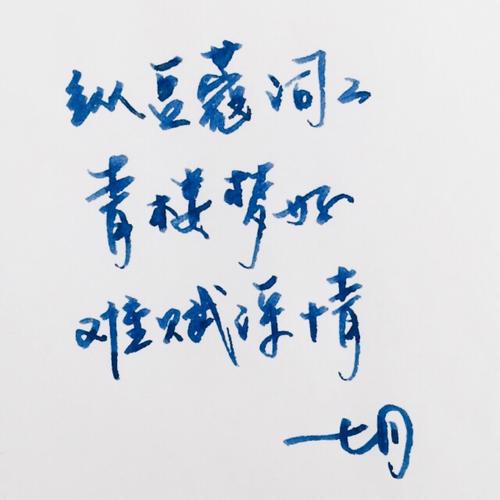 纵豆蔻词工
青楼梦好
难赋深情
七月